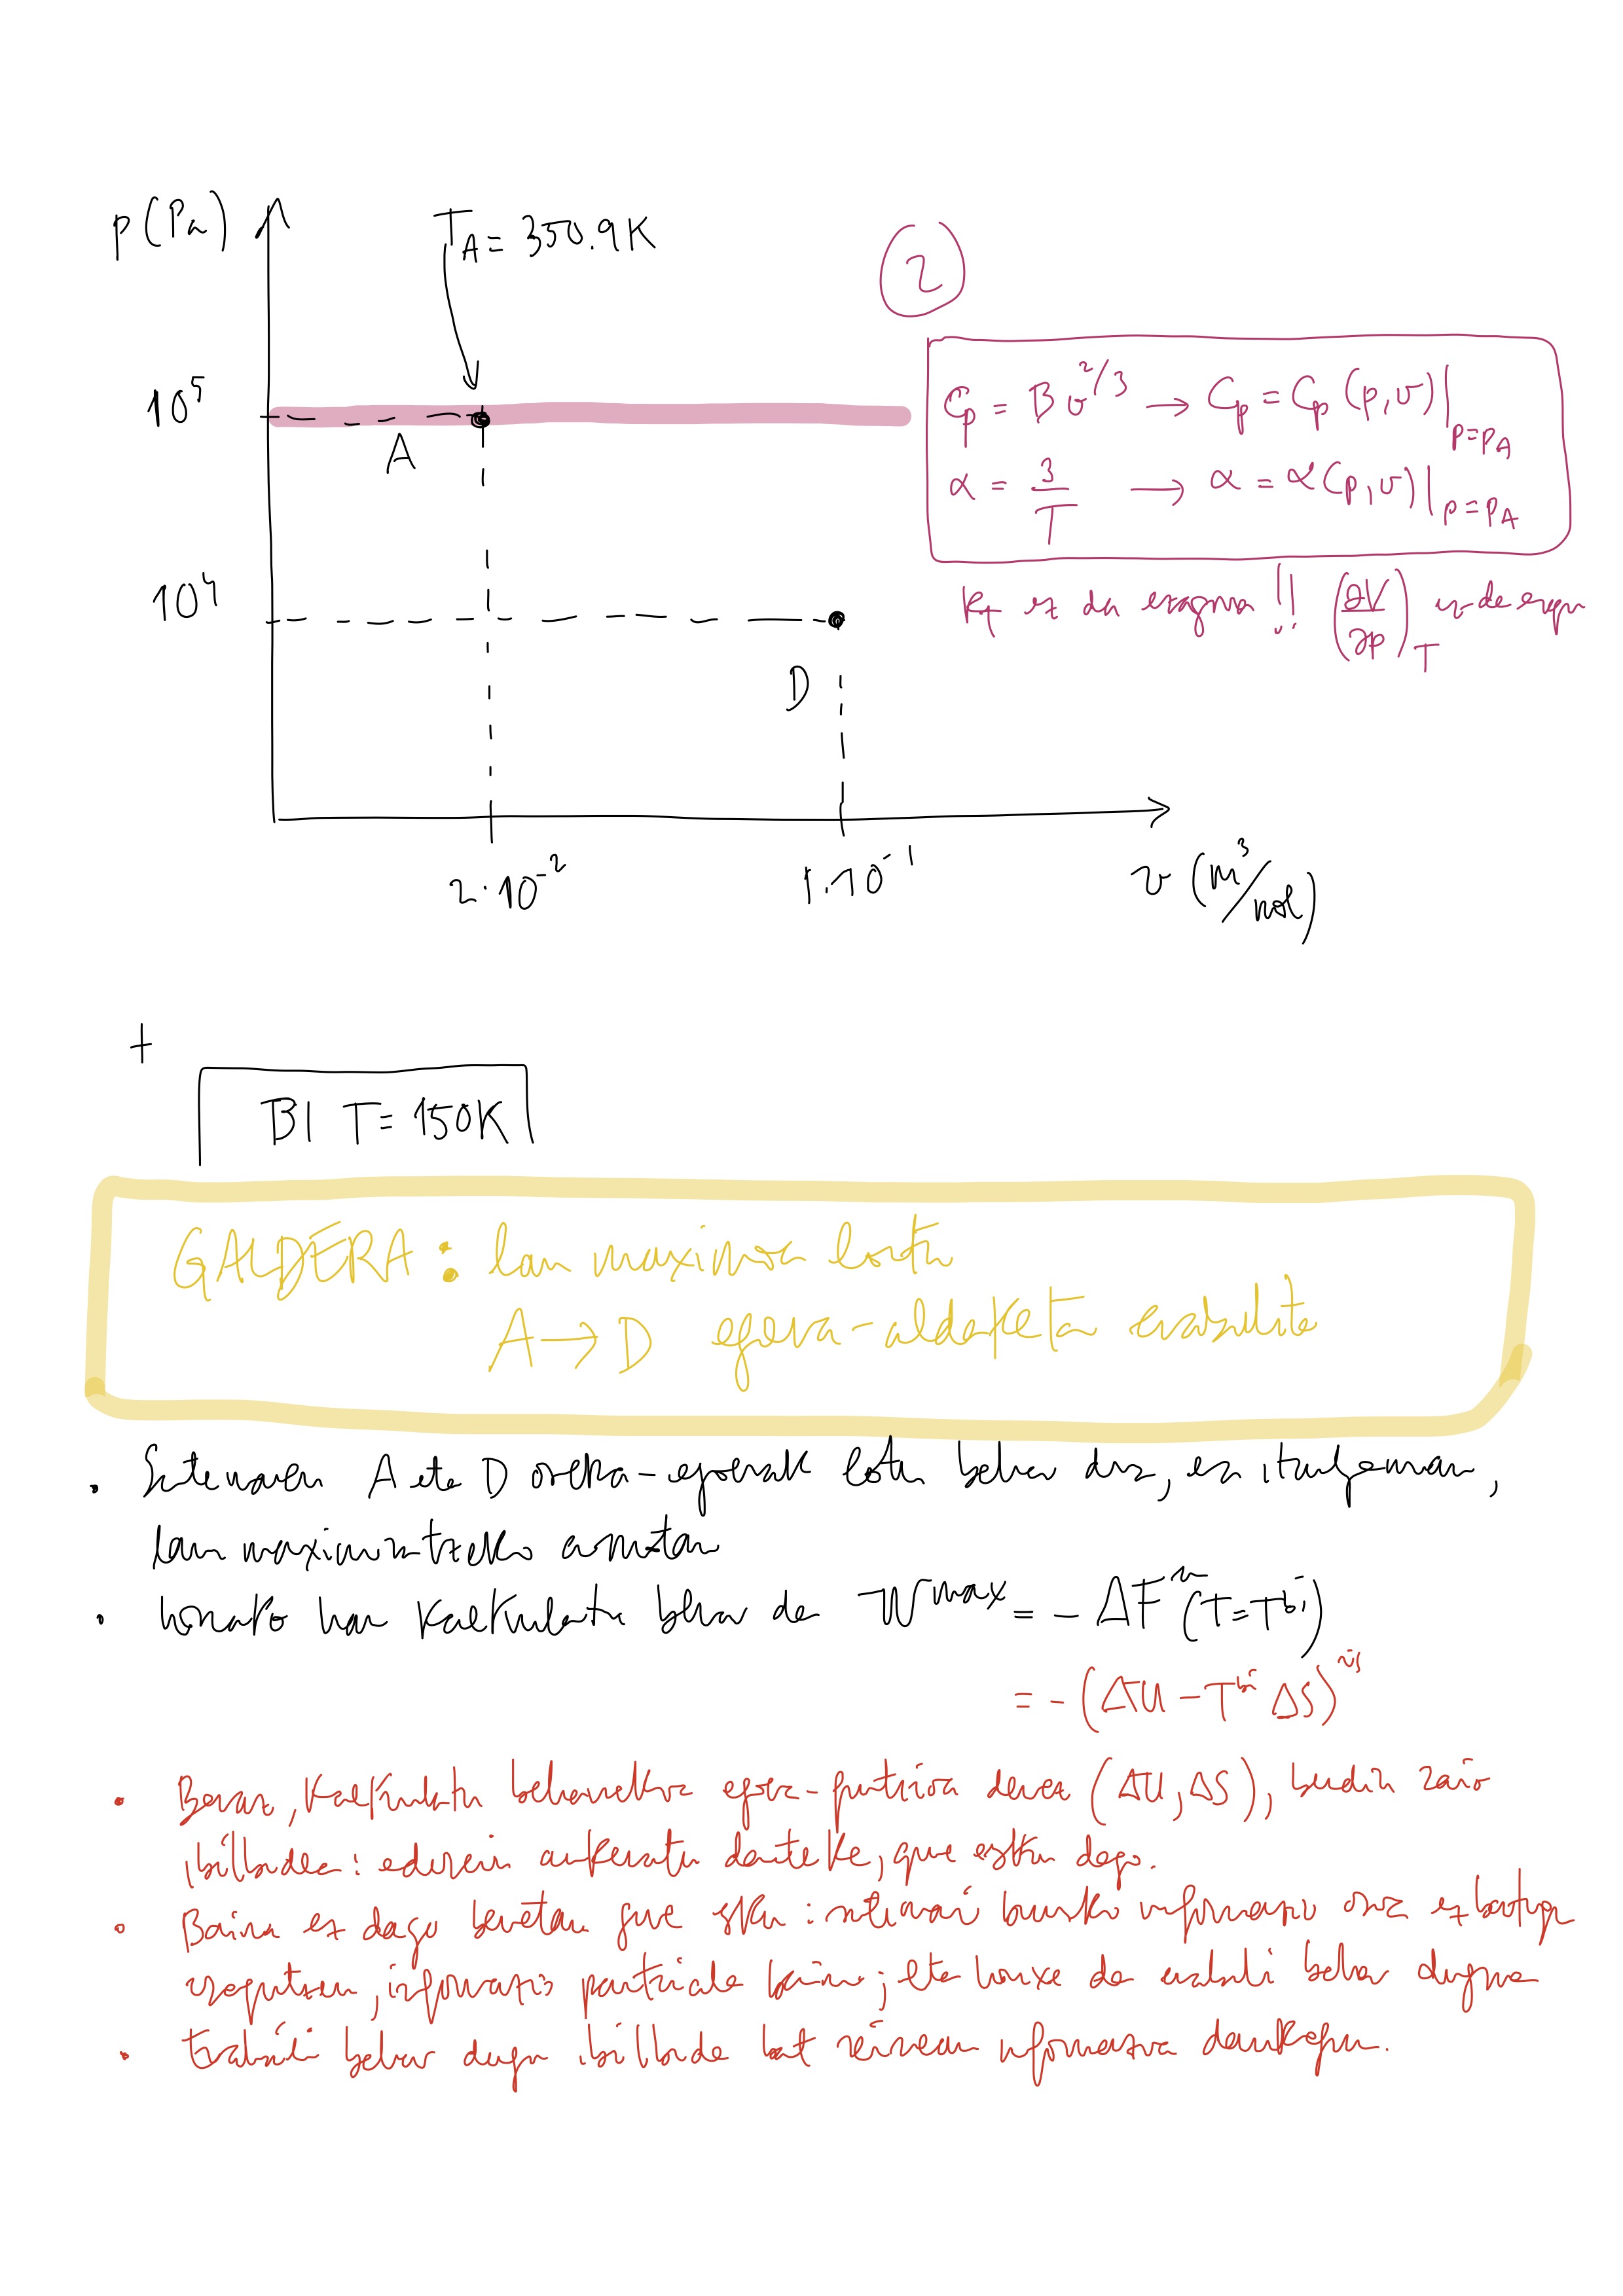 p (Pa)
T_A = 350.9K
2
10⁵
A
C_p = B v^{2/3} → C_p = C_p (p,v)|_{p=p_A}
α = 3/T → α = α(p,v)|_{p=p_A}
10⁴
K_T ez da ezaguna !! (∂V/∂p)_T
D
2·10⁻²
1·10⁻¹
v (m³/mol)
+
BI T= 150K
GALDERA : lan maximoa lortu
A→D egoera-aldaketa erabilita
. Sistemaren A eta D oreka-egoerak lotu behar dira, era itzulgarrian,
lan maximizatzeko
. Horako hau kalkulatu behar da W^max = -ΔF (T=T^bi)
= -(ΔU - T^bi ΔS)^sis
. Beraz, kalkulatu beharrekoa egoera-funtzioa denez (ΔU, ΔS), berdin zaio
ibilbidea : edozein aukeratu daiteke, gure esku dago.
. Baina ez dago benetan gure esku : sistemari buruzko informazio osoa ez baitugu
ezagutzen, informazio partziala baino ; eta hori da erabili behar duguna
. Erabili behar dugu ibilbide bat zeinean informazioa daukagun.